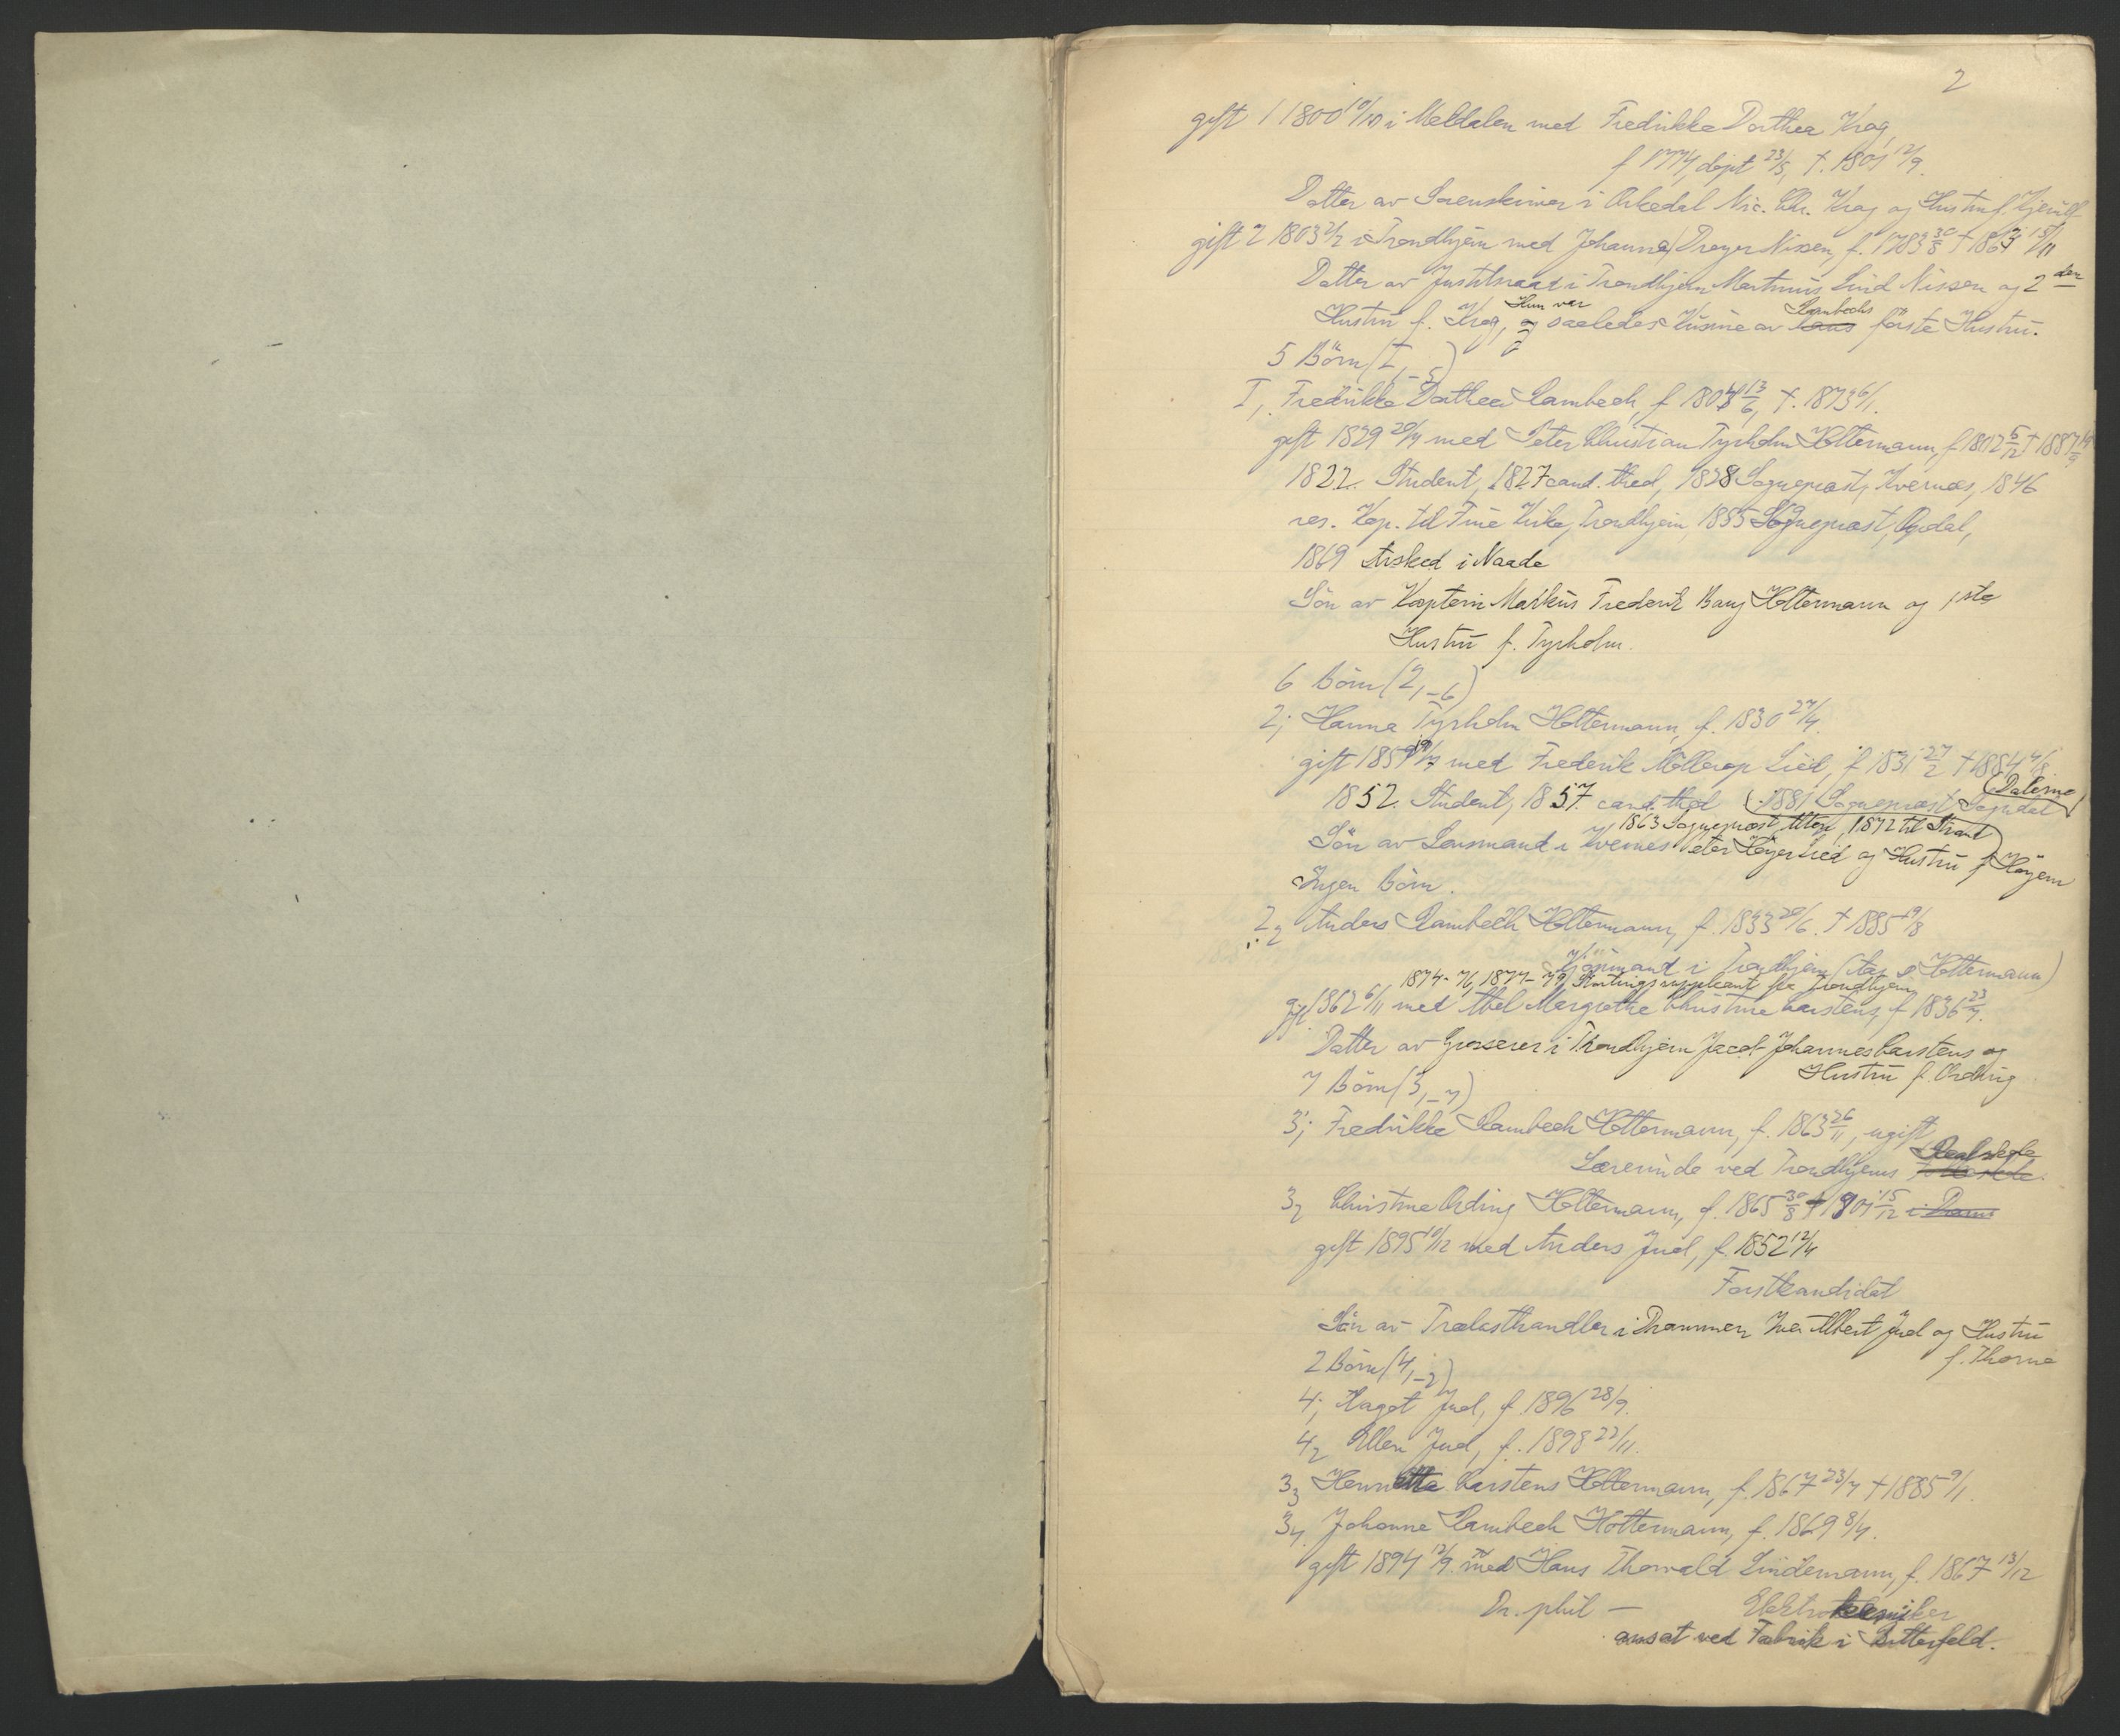 2
gift 1 1800 10/10 i Meldalen med Fredrikke Dorthea Krag,
f 1774, døpt 23/5, †. 1801 12/9.
Datter av Sorenskriver i Orkedal Nic. Chr. Krag og Hustru f. Hjerild
gift 2 1803 2/2 i Trondhjem med Johanna Dreyer Nissen, f. 1783 30/8 † 1863 15/11
Datter av Justitsraad i Trondhjem Martinus Lind Nissen og 2den
Hun var Rambechs
Hustru f. Krag, og saaledes Kusine av hans første Hustru.
5 Börn (I, 1-5)
I, Fredrikke Dorthea Rambech, f 1804 13/6, †. 1873 6/1.
gift 1829 20/4 med Peter Christian Tyrholm Holtermann, f 1802 5/12 † 1887 14/9
1822. Student, 1827 cand. theol, 1828 Sogneprest, Kvernes, 1846
res. Kap. til Frue Kirke, Trondhjem, 1855 Sogneprest, Opdal,
1869 Avsked i Naade
Sön av Kaptein Markus Frederik Bang Holtermann og 1ste
Hustru f. Tyrholm.
6 Börn (2, 1-6)
2, Hanna Tyrholm Holtermann, f. 1830 27/4.
gift 1859 19/7 med Frederik Möllerop Lied, f 1831 27/2 † 1884 4/8
(Dalerne)
1852. Student, 1857. cand. theol (1881 Sogneprest Sogndal
1863 Sogneprest Alten, 1872 til Strand)
Sön av Lensmand i Kvernes Peter Høyer Lied og Hustru f Höyem
Ingen Börn.
2 2 Anders Rambech Holtermann, f. 1833 20/6. † 1885 19/8
Kjöpmand i Trondhjem (Aas & Holtermann)
1874-76, 1877-79 Stortingssuppleant fra Trondhjem
gift 1862 6/11 med Abel Margrethe Christine Carstens, f 1836 23/7.
Datter av Grosserer i Trondhjem Jacob Johannes Carstens og
Hustru f. Ording
7 Börn (3, 1-7)
3, Fredrikke Rambech Holtermann, f. 1863 26/11, ugift
Realskole
Lærerinde ved Trondhjems
3 2 Christine Ording Holtermann, f. 1865 30/8 † 1901 15/12 i Dram
gift 1895 10/12 med Anders Juel, f. 1852 12/4
Forstkandidat
Sön av Trælasthandler i Drammen Iver Albert Juel og Hustru
f. Thorne
2 Börn (4, 1-2)
4, Aagot Juel, f. 1896 28/9.
4 2 Ellen Juel, f. 1898 22/11.
3 3 Henriette Carstens Holtermann, f. 1867 23/7 † 1885 9/1.
3 4. Johanne Rambech Holtermann, f. 1869 8/4.
gift 1894 12/9. med Hans Thorvald Lindemann, f. 1867 13/12
Dr. phil — Elektrokemiker
ansat ved Fabrik i Bitterfeld.